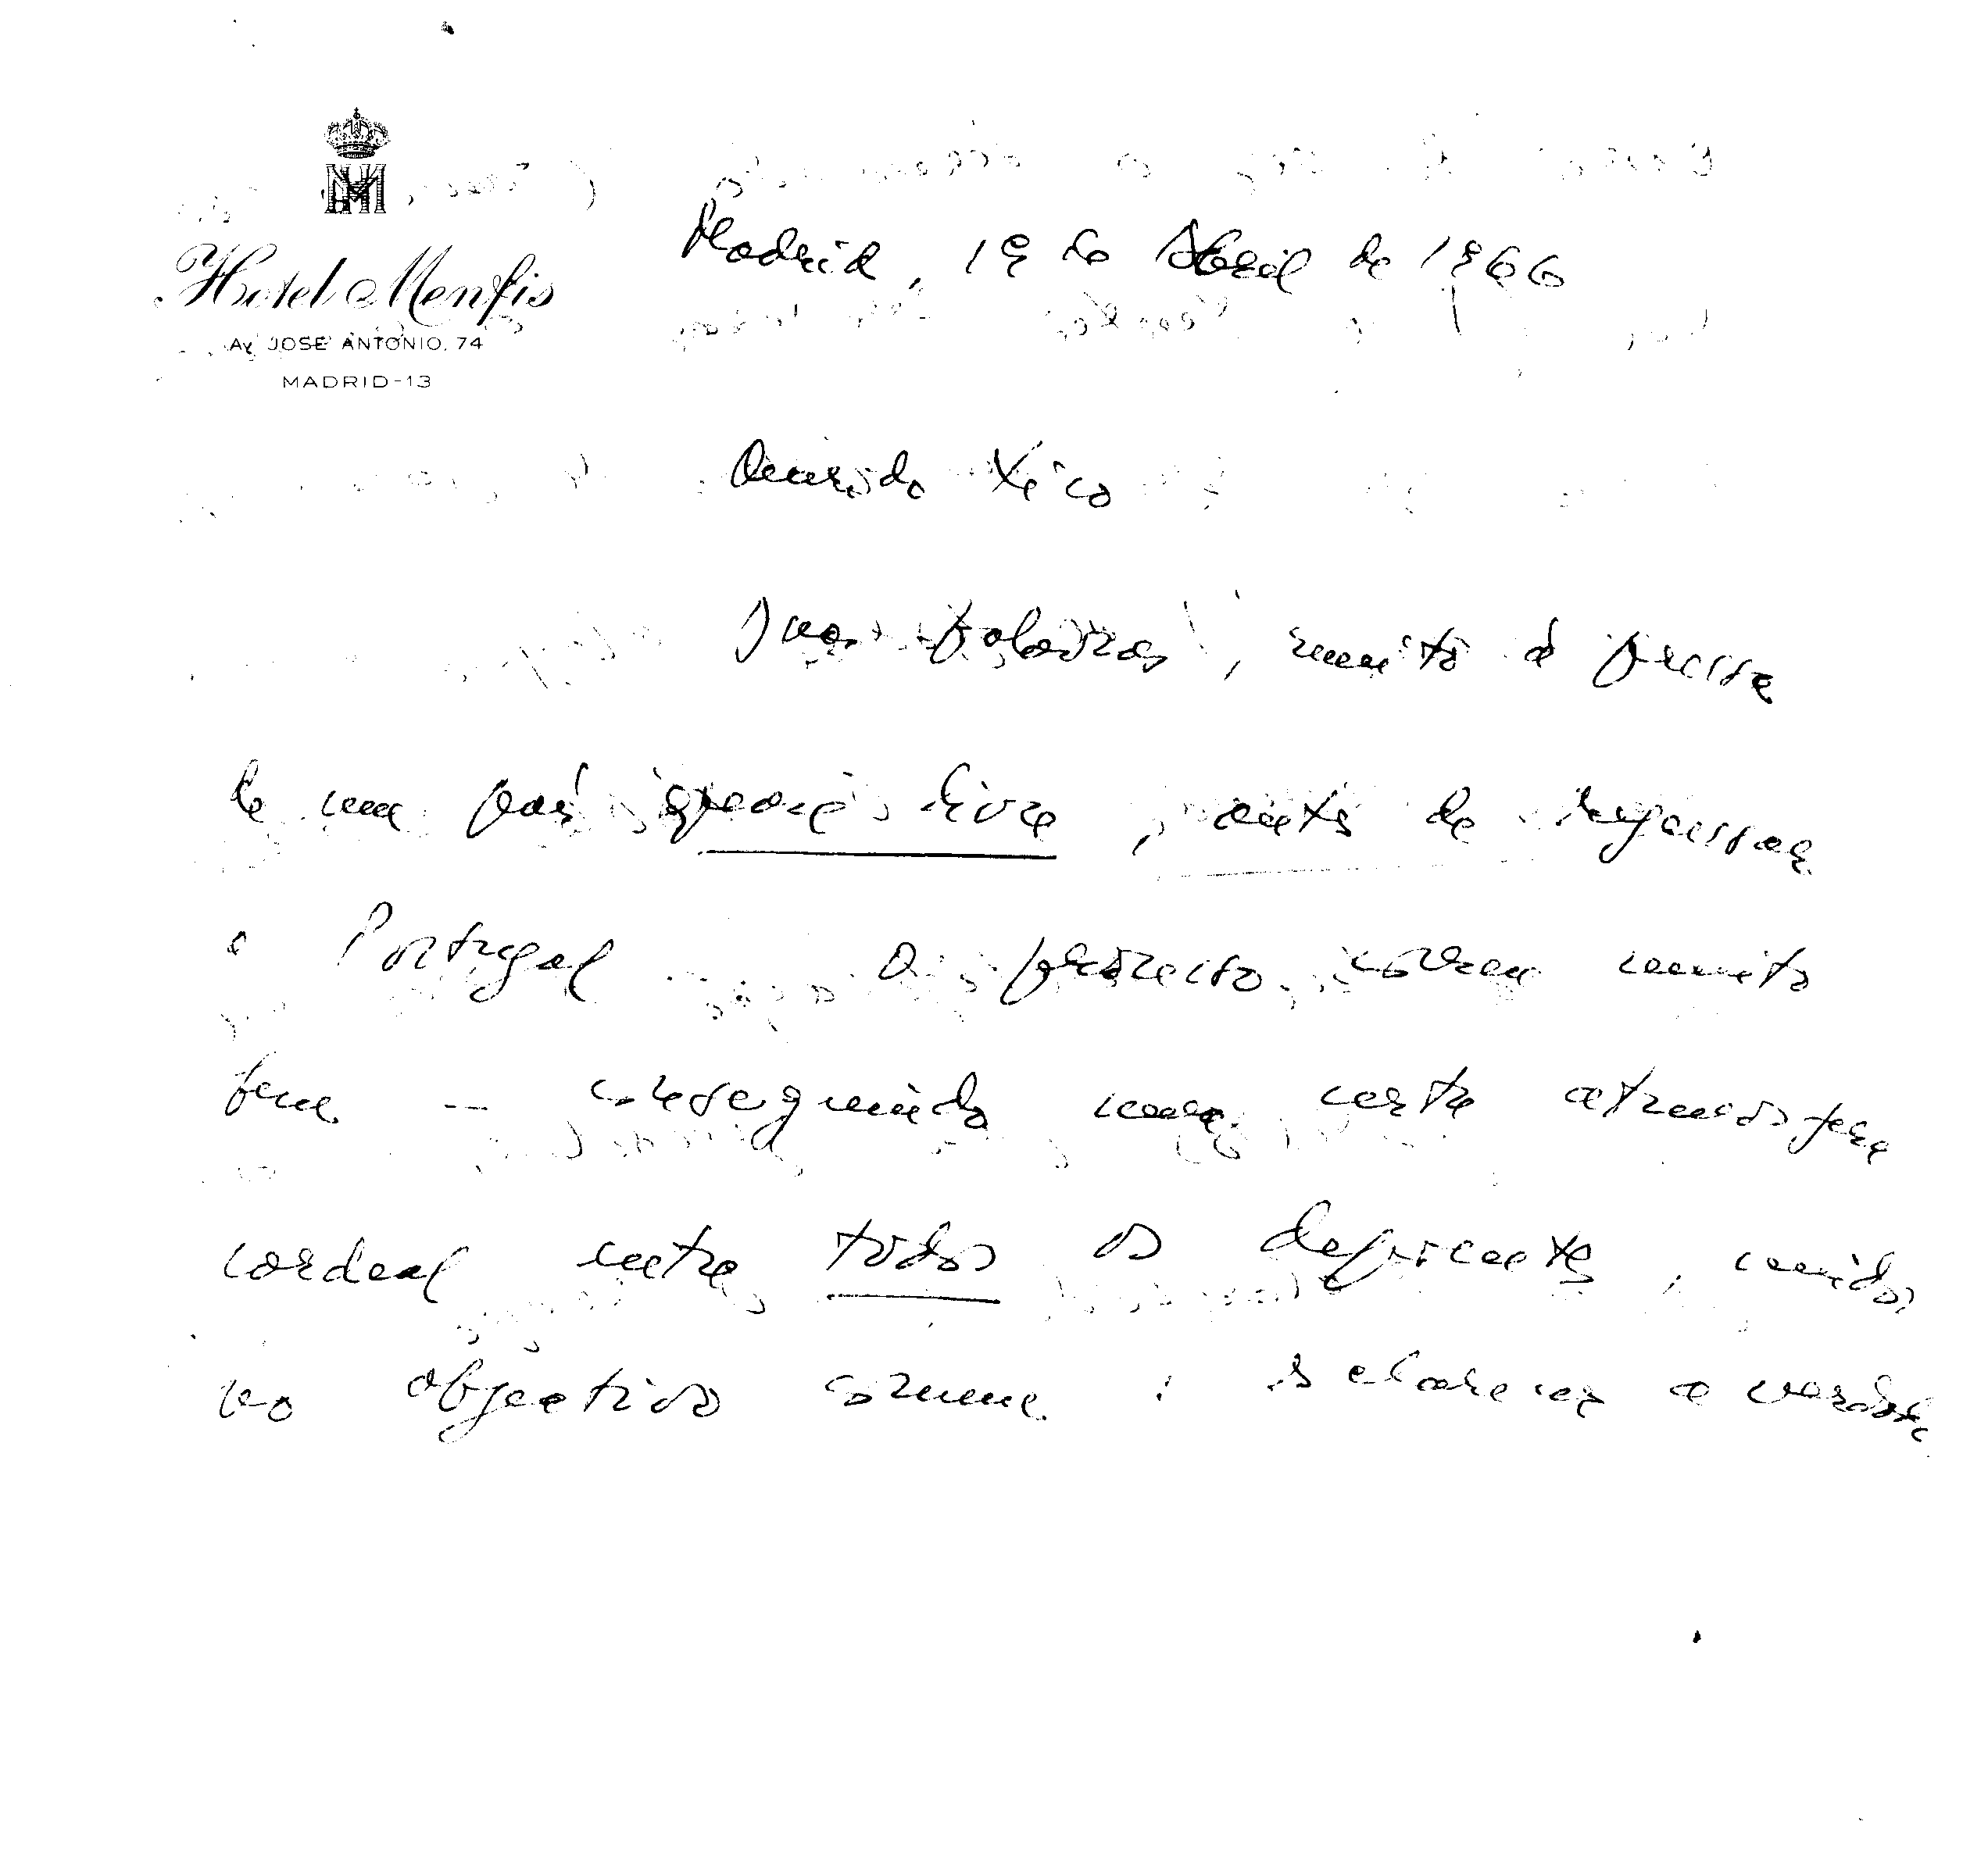 Hotel Menfis
Av. JOSE ANTONIO, 74
MADRID-13
Madrid, 19 de Abril de 1966
Querido Xico
Duas palavras, muito à pressa
de um país quase livre, antes de regressar
a Portugal. O processo correu muito
bem — conseguindo uma certa atmosfera
cordeal entre todos os depoentes, unidos
no objectivo comum: esclarecer a verdade